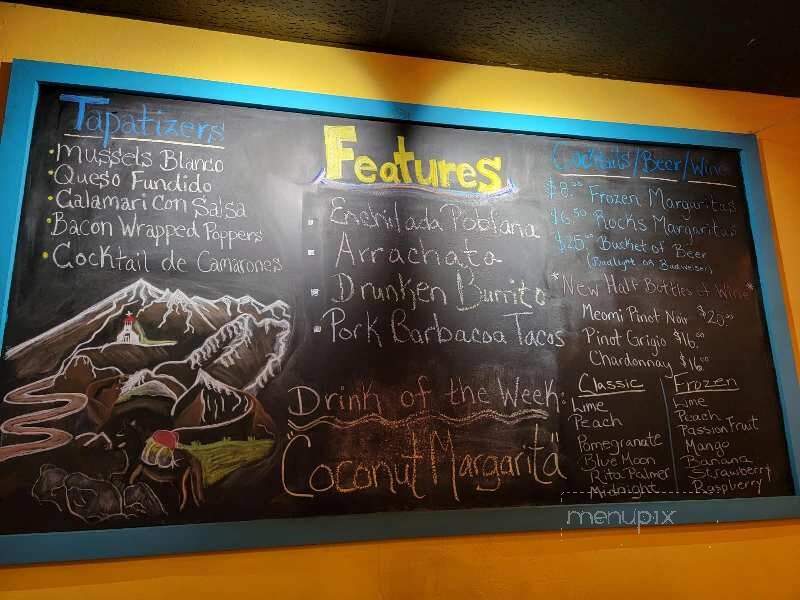 Tapatizers
Mussels Blanco
Queso Fundido
Calamari Con Salsa
Bacon Wrapped Poppers
Cocktail de Camarones
Features
Enchilada Poblana
Arrachata
Drunken Burrito
Pork Barbacoa Tacos
Drink of the Week:
"Coconut Margarita"
Cocktails/Beer/Wine
$8.00 Frozen Margaritas
$6.50 Rocks Margaritas
$25.00 Bucket of Beer
(Budlight or Budweiser)
*New Half Bottles of Wine*
Meomi Pinot Noir $20.00
Pinot Grigio $16.00
Chardonnay $16.00
Classic
Lime
Peach
Pomegranate
Blue Moon
Rita Palmer
Midnight
Frozen
Lime
Peach
Passion Fruit
Mango
Banana
Strawberry
Raspberry
menupix